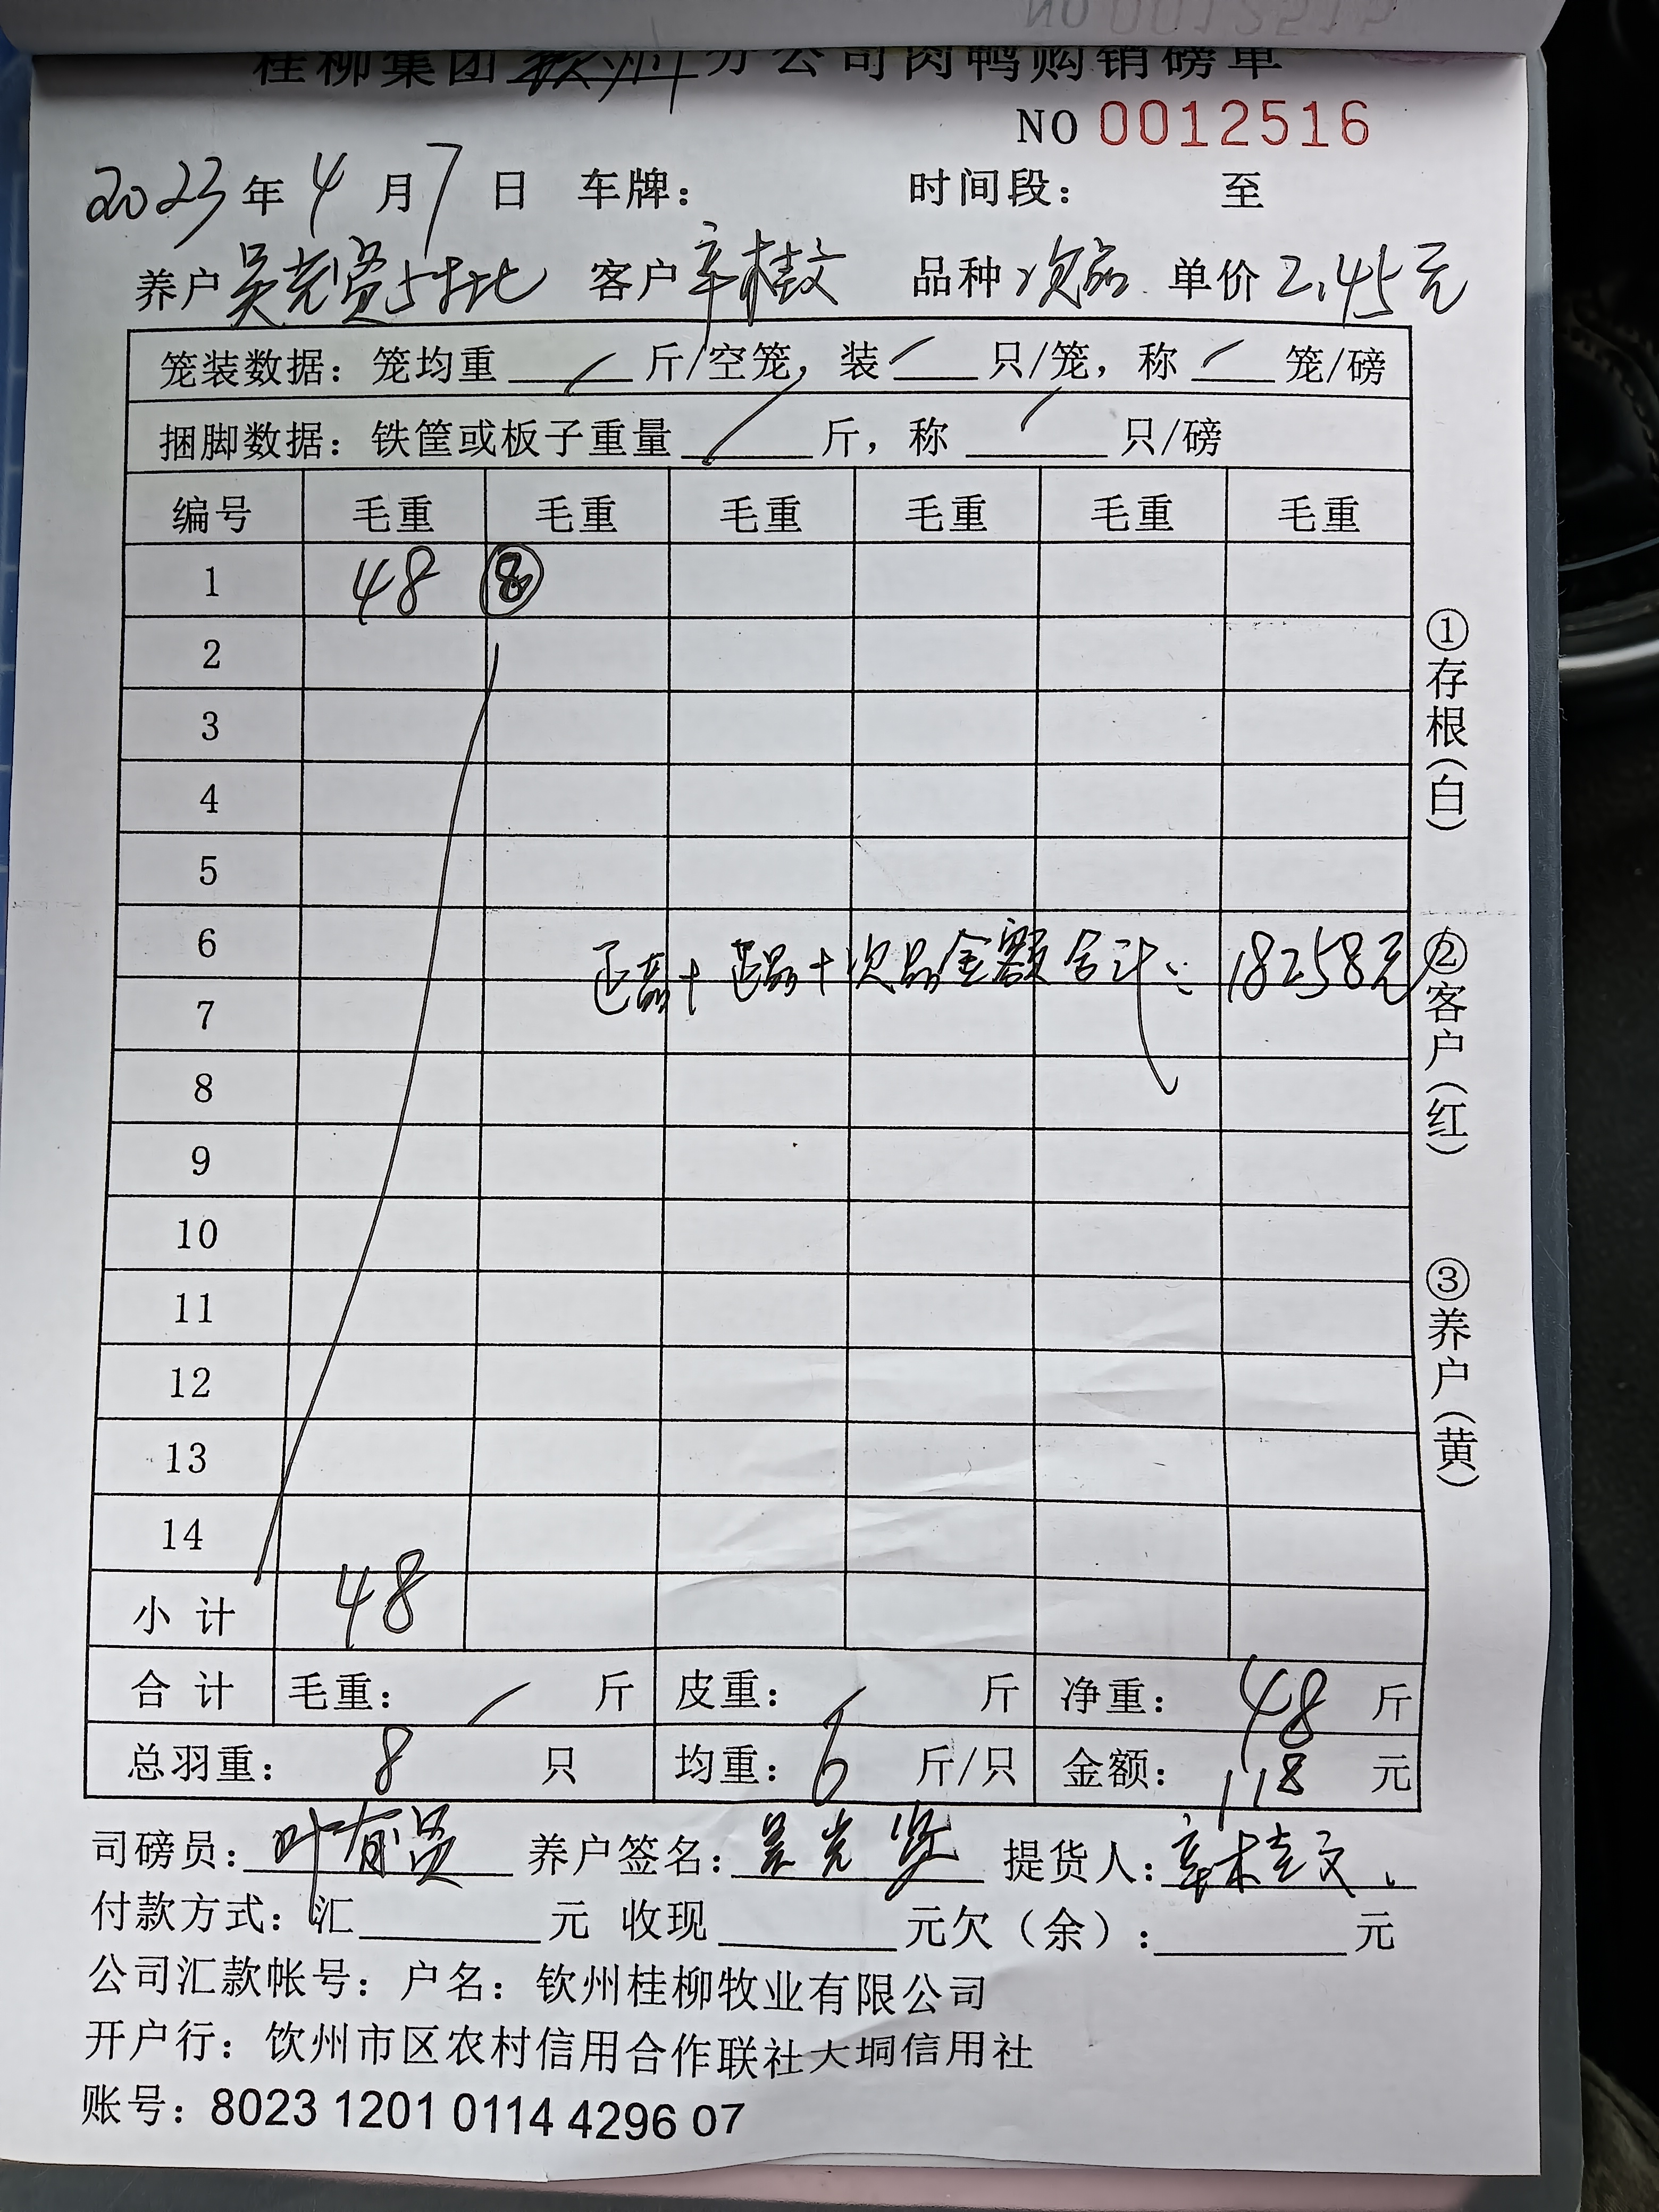 桂柳集团钦州分公司肉鸭购销磅单
NO 0012516
2023年4月7日 车牌： 时间段： 至
养户 吴光贤5批 客户 辛桂文 品种 次品 单价 2.45元
笼装数据：笼均重 斤/空笼，装 只/笼，称 笼/磅
捆脚数据：铁筐或板子重量 斤，称 只/磅
编号 毛重 毛重 毛重 毛重 毛重 毛重
1 48 ⑧
2
3
4
5
6
正品+正品+次品金额合计： 18258元
7
8
9
10
11
12
13
14
小计 48
合计 毛重： 斤 皮重： 斤 净重：48 斤
总羽重：8 只 均重：6 斤/只 金额：118 元
司磅员：叶有贤 养户签名：吴光贤 提货人：辛桂文
付款方式：汇 元 收现 元欠（余）： 元
公司汇款帐号：户名：钦州桂柳牧业有限公司
开户行：饮州市区农村信用合作联社大垌信用社
账号：8023 1201 0114 4296 07
①存根（白）
②客户（红）
③养户（黄）